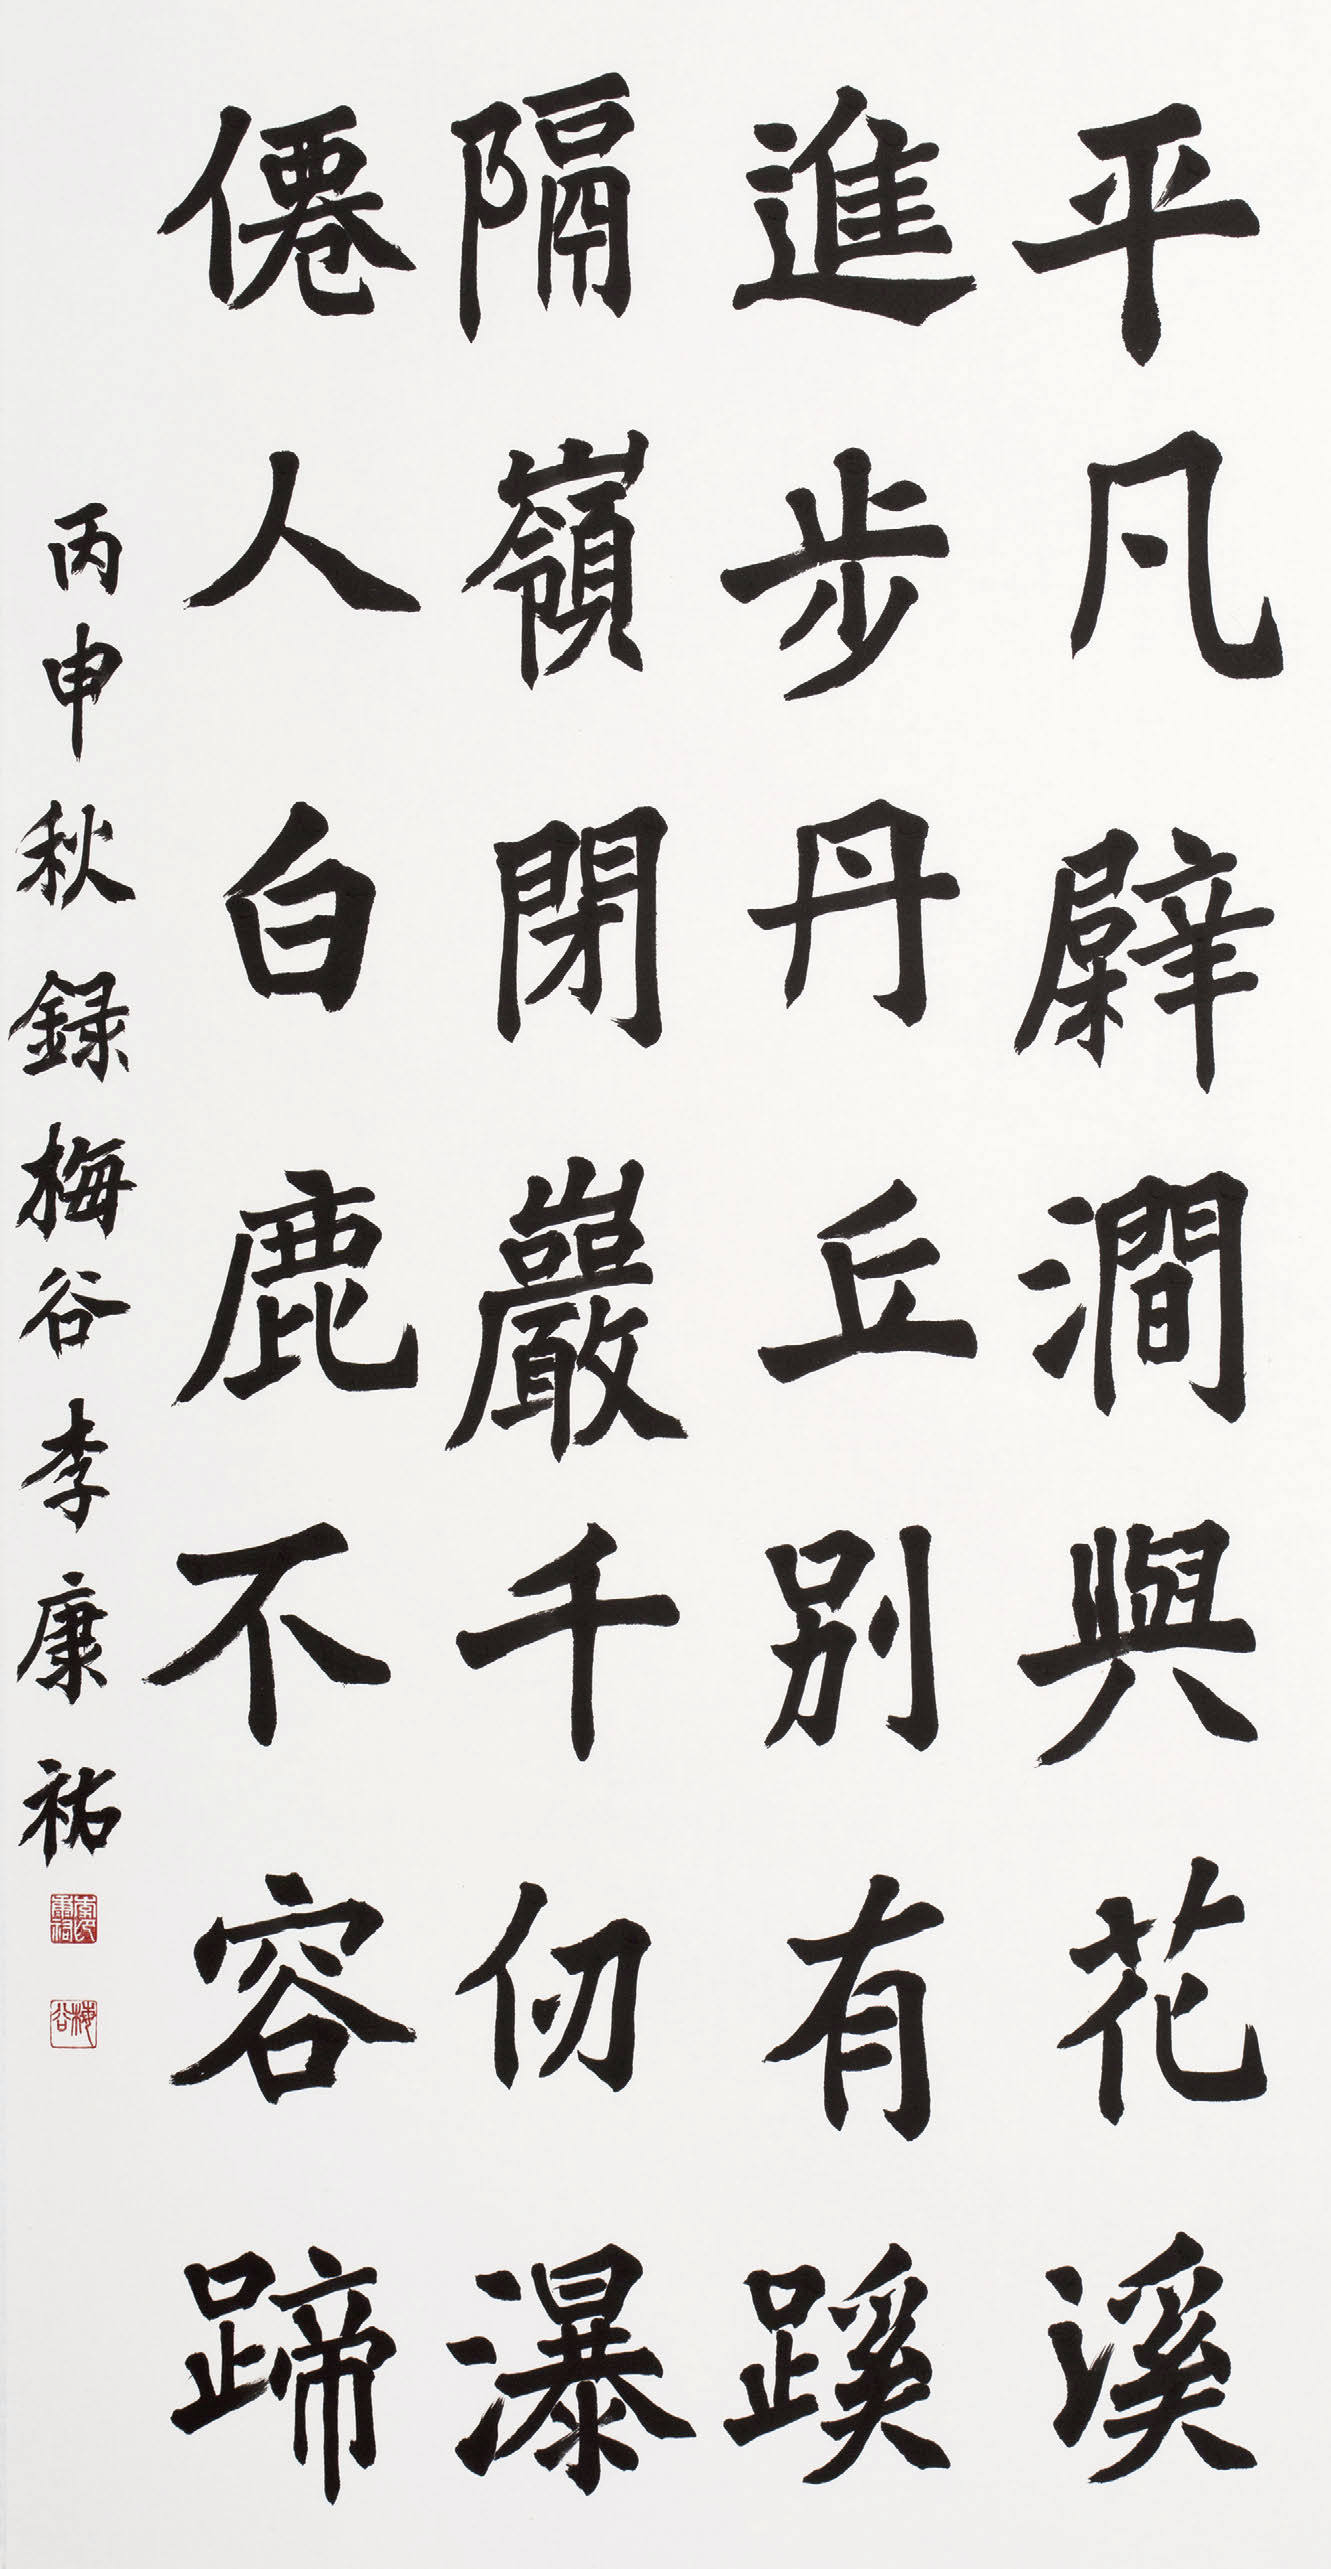 平凡辟澗與花溪
進步丹丘别有蹊
隔嶺閉巖千仞瀑
僊人白鹿不容蹄
丙申秋録梅谷李康祐
李氏康祐
梅谷